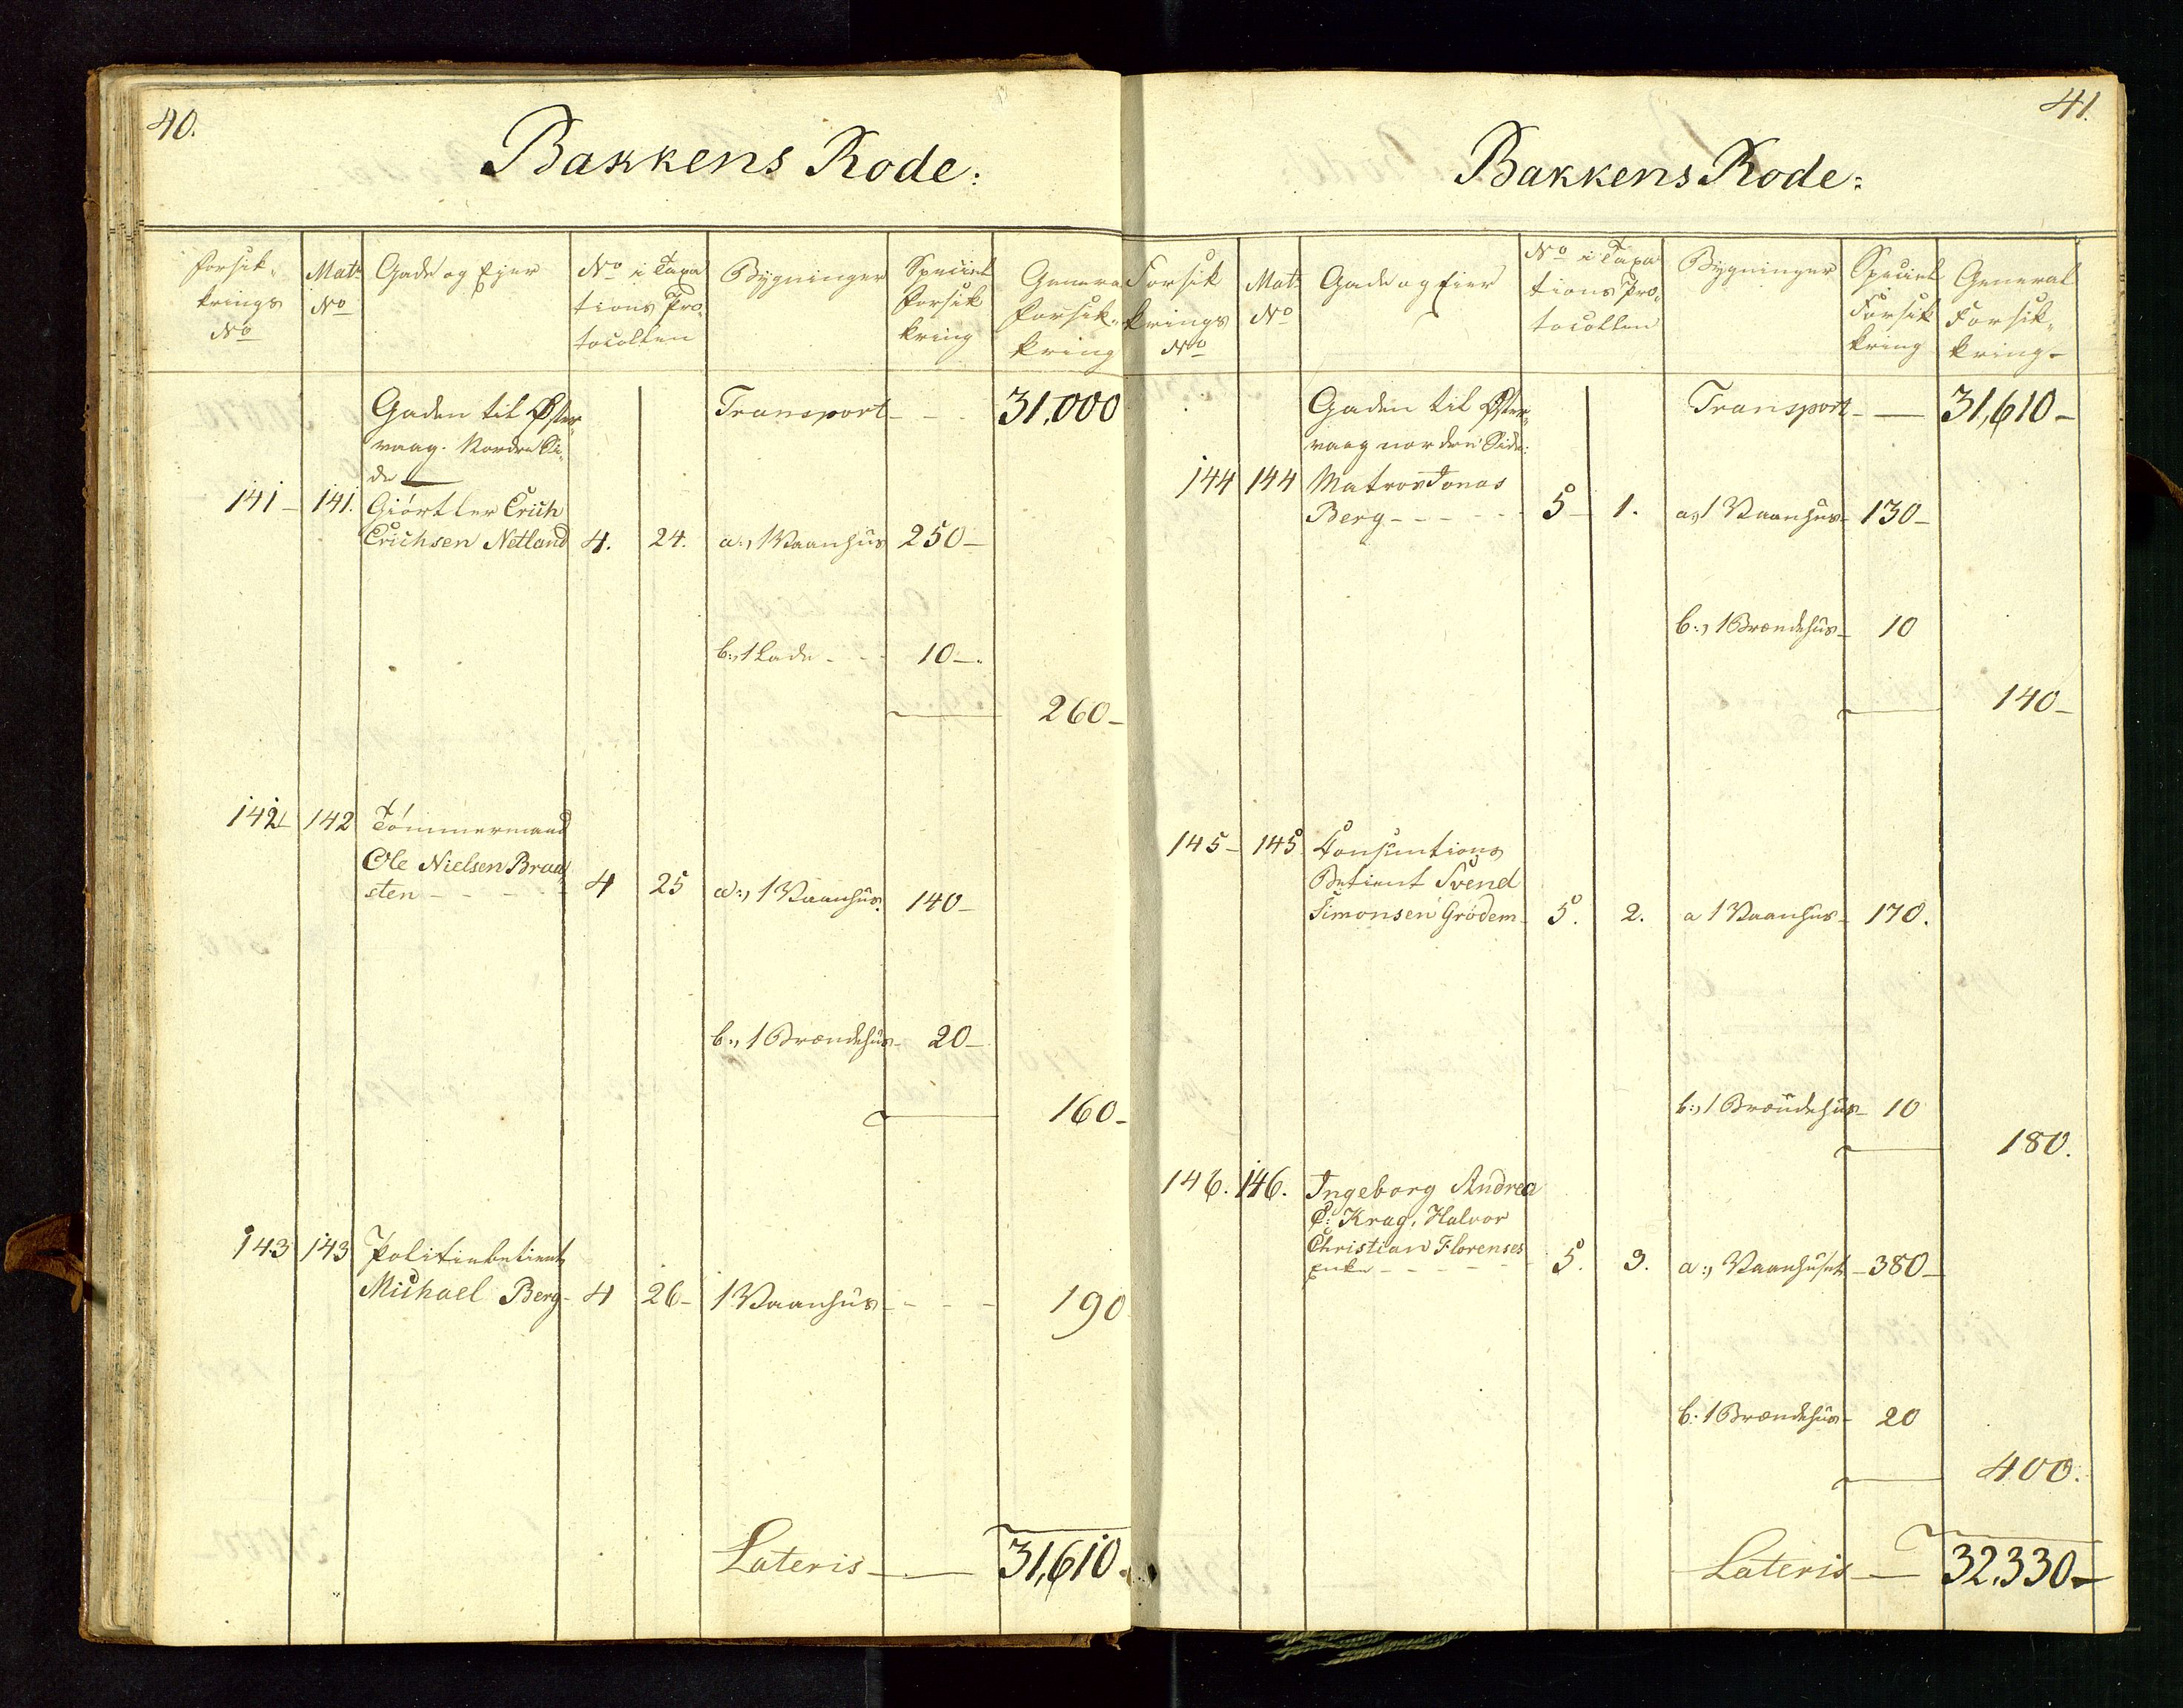 40.
Bakkens Rode:
Forsik-
krings
No
Matr
No
Gade og Ejer
No i Taxa
tions Pro-
tocollen
Bygninger
Speciel
Forsik
kring
General
Forsik-
kring
Gaden til Øster-
vaag. Nordre Si-
de
Transport - - 31,000
141 - 141. Giörtler Erich
Erichsen Netland 4. 24. a:, 1 Vaanhus 250 -
b:, 1 Lade - - 10 -
260 -
142 - 142 Tömmermand
Ole Nielsen Braa-
sten - - - - 4 25 a:, 1 Vaanhus 140 -
b:, 1 Brændehus - 20 -
160 -
143 143 Politiebetient
Michael Berg - 4 26 - 1 Vaanhus - - - 190
Lateris - - 31,610 -
41.
Bakkens Rode:
Forsik
krings
No
Matr
No
Gade og Eier
No i Taxa
tions Pro-
tocollen
Bygninger
Speciel
Forsik
kring
General
Forsik-
kring
Gaden til Øster-
vaag nordre Side:
Transport - - 31,610 -
144 144 Matros Jonas
Berg - - - - - 5 - 1. a, 1 Vaanhus - 130 -
b:, 1 Brændehus - 10
140 -
145 - 145 Consumtions
Betient Svend
Simonsen Grödem - 5. 2. a 1 Vaanhus - 170.
b:, 1 Brændehus - 10
180.
146. 146. Ingeborg Andrea
C: Krag, Halvor
Christian Florenses
Enke - - - - - 5. 3. a:, Vaanhuset - 380 -
b: 1 Brændehus - 20
400.
Lateris - - 32,330 -